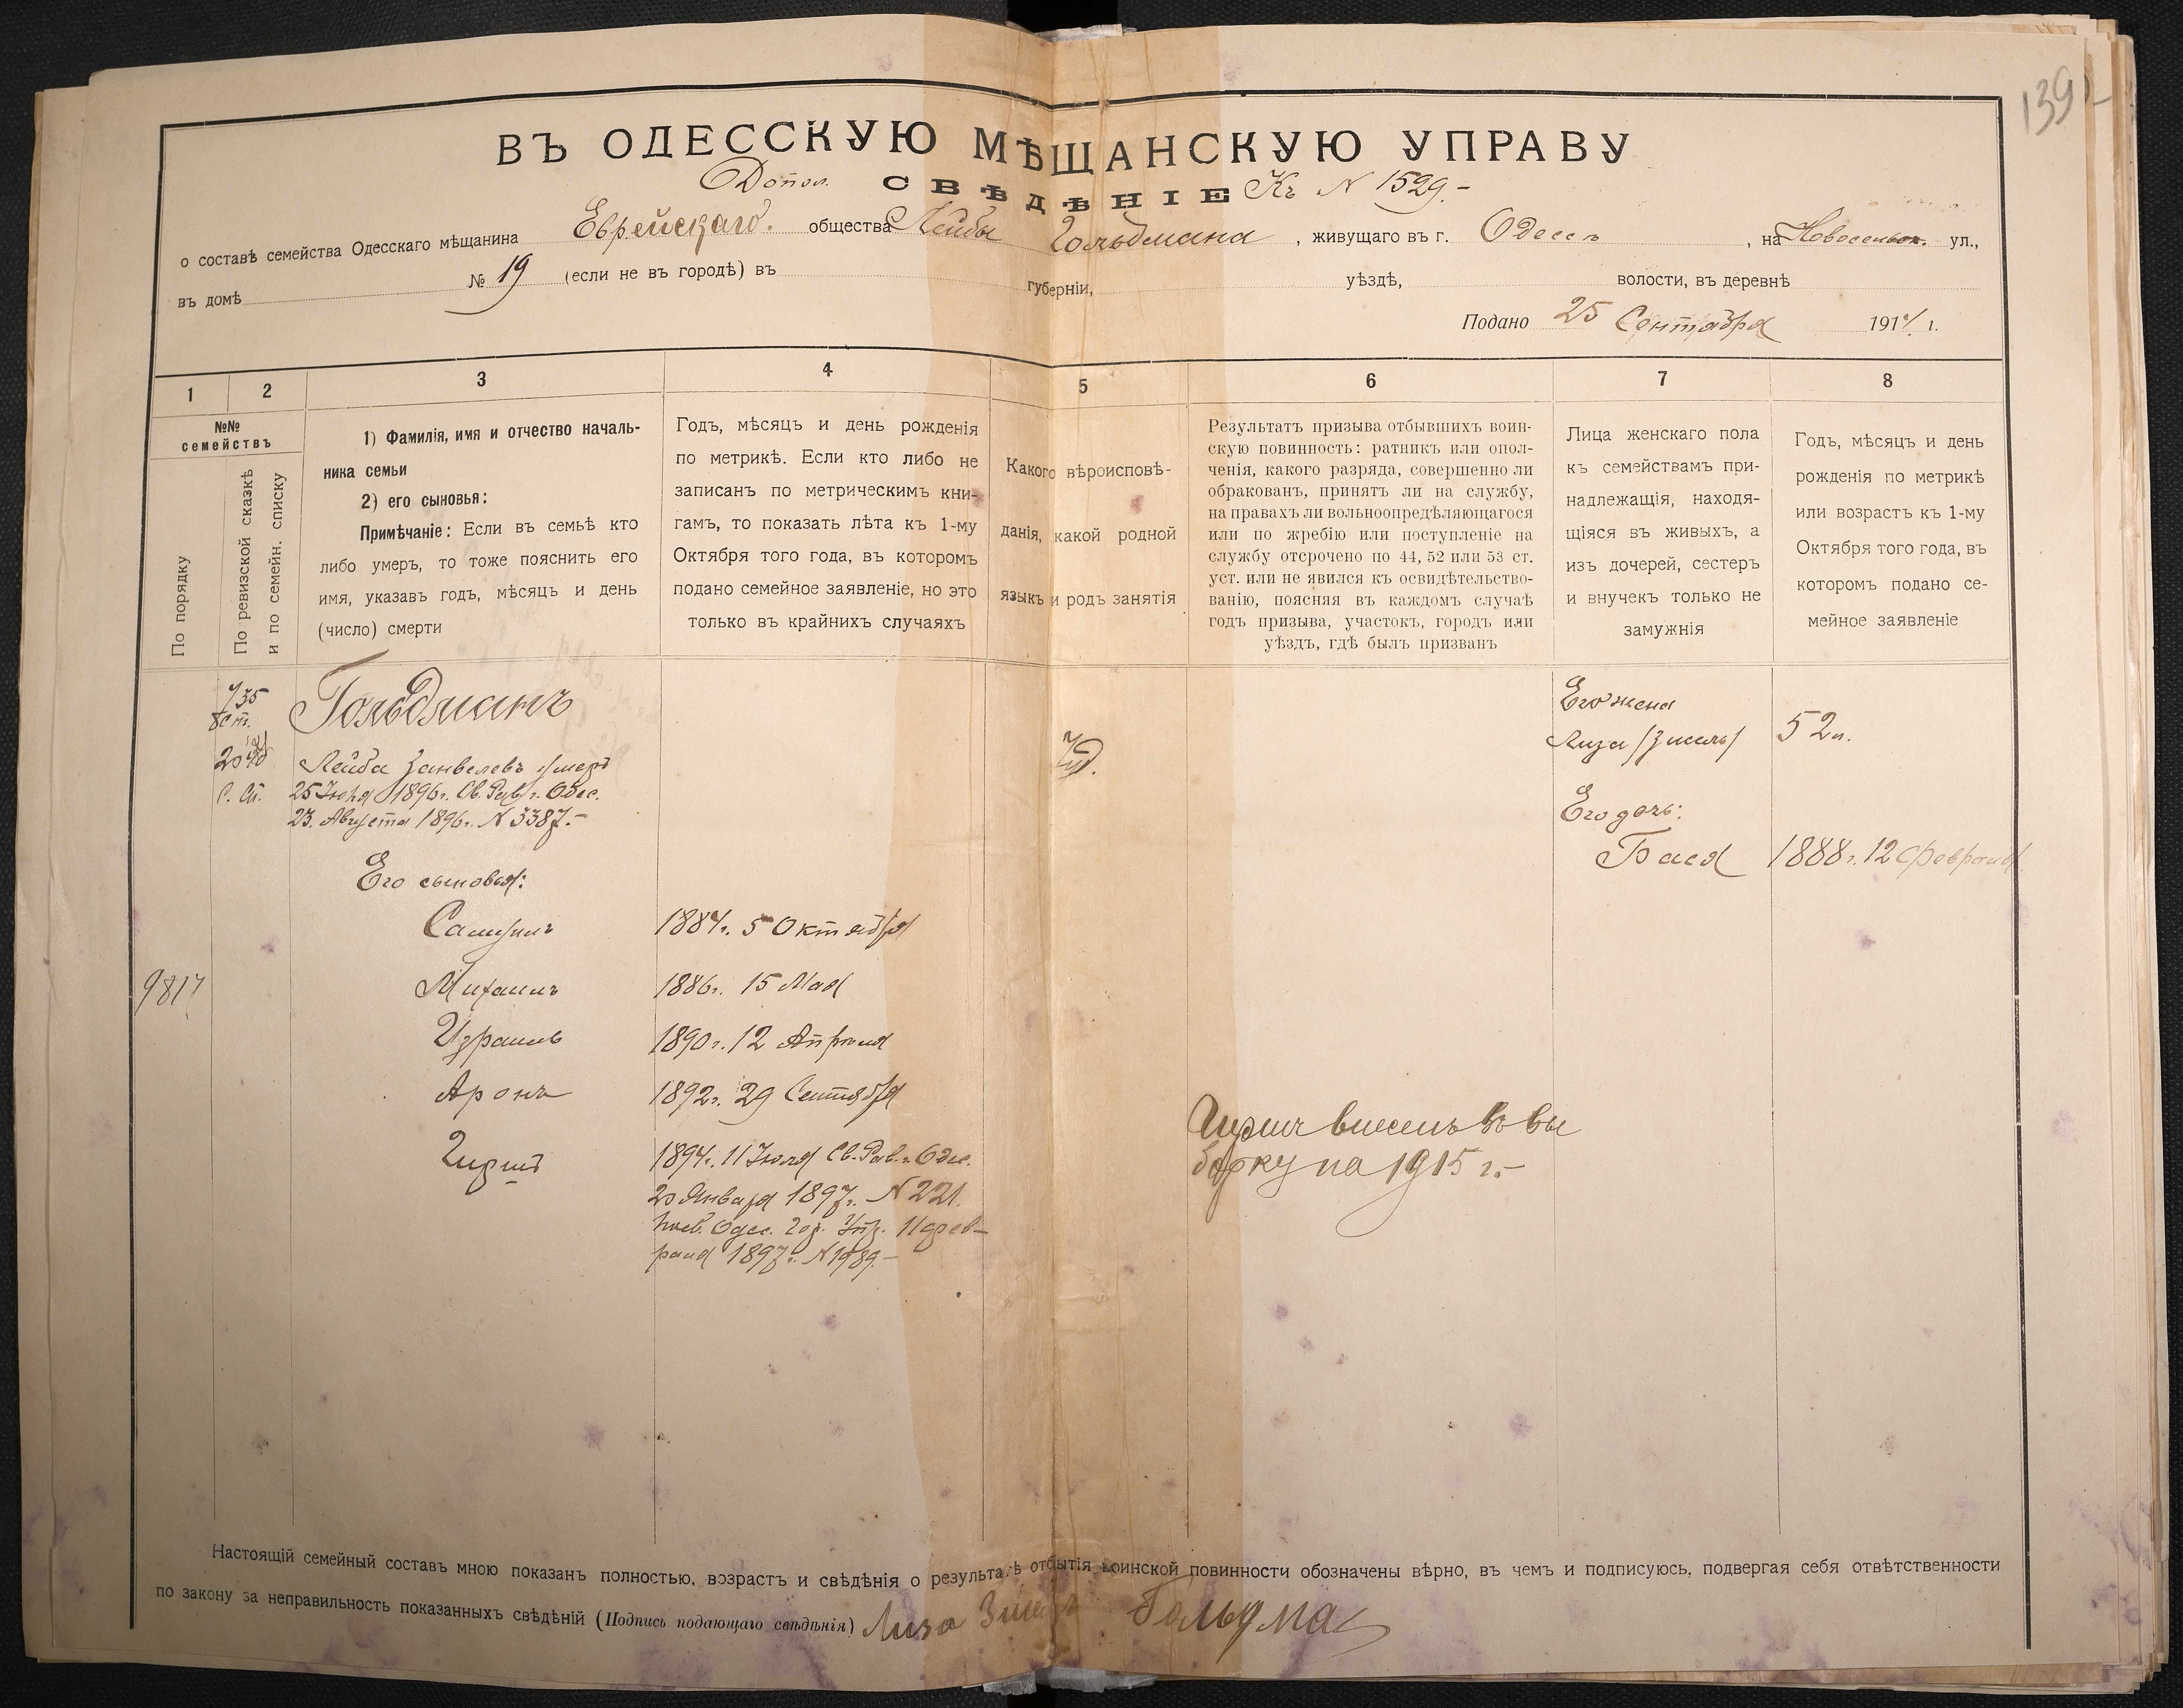 139
ВЪ ОДЕССКУЮ МѢЩАНСКУЮ УПРАВУ
Допол. СВѢДѢНІЕ Къ N 1529.-
о составѣ семейства Одесскаго мѣщанина Еврейскаго. общества Лейбы Гольдмана, живущаго въ г. Одессѣ, на Новосельск. ул.,
въ домѣ № 19 (если не въ городѣ) въ губерніи, уѣздѣ, волости, въ деревнѣ
Подано 25 Сентября 1914 г.
1 2 3 4 5 6 7 8
№№
семействъ
По порядку
По ревизской сказкѣ
и по семейн. списку
1) Фамилія, имя и отчество началь-
ника семьи
2) его сыновья:
Примѣчаніе: Если въ семьѣ кто
либо умеръ, то тоже пояснить его
имя, указавъ годъ, мѣсяцъ и день
(число) смерти
Годъ, мѣсяцъ и день рожденія
по метрикѣ. Если кто либо не
записанъ по метрическимъ кни-
гамъ, то показать лѣта къ 1-му
Октября того года, въ которомъ
подано семейное заявленіе, но это
только въ крайнихъ случаяхъ
Какого вѣроисповѣ-
данія, какой родной
языкъ и родъ занятія
Результатъ призыва отбывшихъ воин-
скую повинность: ратникъ или опол-
ченія, какого разряда, совершенно ли
обракованъ, принятъ ли на службу,
на правахъ ли вольноопредѣляющагося
или по жребію или поступленіе на
службу отсрочено по 44, 52 или 53 ст.
уст. или не явился къ освидѣтельство-
ванію, поясняя въ каждомъ случаѣ
годъ призыва, участокъ, городъ или
уѣздъ, гдѣ былъ призванъ
Лица женскаго пола
къ семействамъ при-
надлежащія, находя-
щіяся въ живыхъ, а
изъ дочерей, сестеръ
и внучекъ только не
замужнія
Годъ, мѣсяцъ и день
рожденія по метрикѣ
или возрастъ къ 1-му
Октября того года, въ
которомъ подано се-
мейное заявленіе
735
Гольдманъ
С. Сп.
Лейба Занвелевъ умеръ
25 Іюня 1896г. Св. Рав. г. Одес.
23. Августа 1896г. N 3387.-
Іуд.
Его жена
Лиза (Зисель) 52 л.
Его дочь:
Бася 1888г. 12 Февраля
Его сыновья:
Самуилъ 1884г. 5 Октября
9817
Михаилъ 1886г. 15 Мая
Израиль 1890г. 12 Апрѣля
Аронъ 1892г. 29 Сентября
Гиршъ 1894г. 11 Іюля Св. Рав. г. Одес.
20 Января 1897г. N 221.
Одес. Гор. Упр. 11 Фев-
раля 1897г. N 1989.-
Гиршъ внесенъ въ вы
борку на 1915 г.-
Настоящій семейный составъ мною показанъ полностью, возрастъ и свѣдѣнія о результатѣ отбытія воинской повинности обозначены вѣрно, въ чемъ и подписуюсь, подвергая себя отвѣтственности
по закону за неправильность показанныхъ свѣдѣній (Подпись подающаго свѣдѣнія) Лиза Гольдма